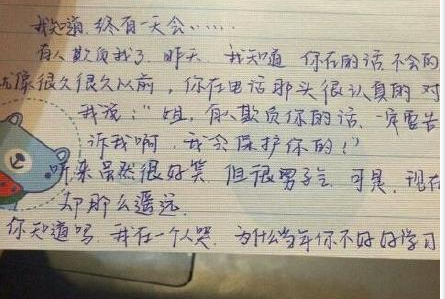 我知道,终有一天会……
有人欺负我了.昨天.我知道 你在的话不会的
就像很久很久以前,你在电话那头很认真的对
我说:"姐,有人欺负你的话、一定要告
诉我啊,我会保护你的!"
听来虽然很好笑 但很男子气.可是,现在
却那么遥远.
你知道吗.我在一个人哭.为什么当年你不好好学习